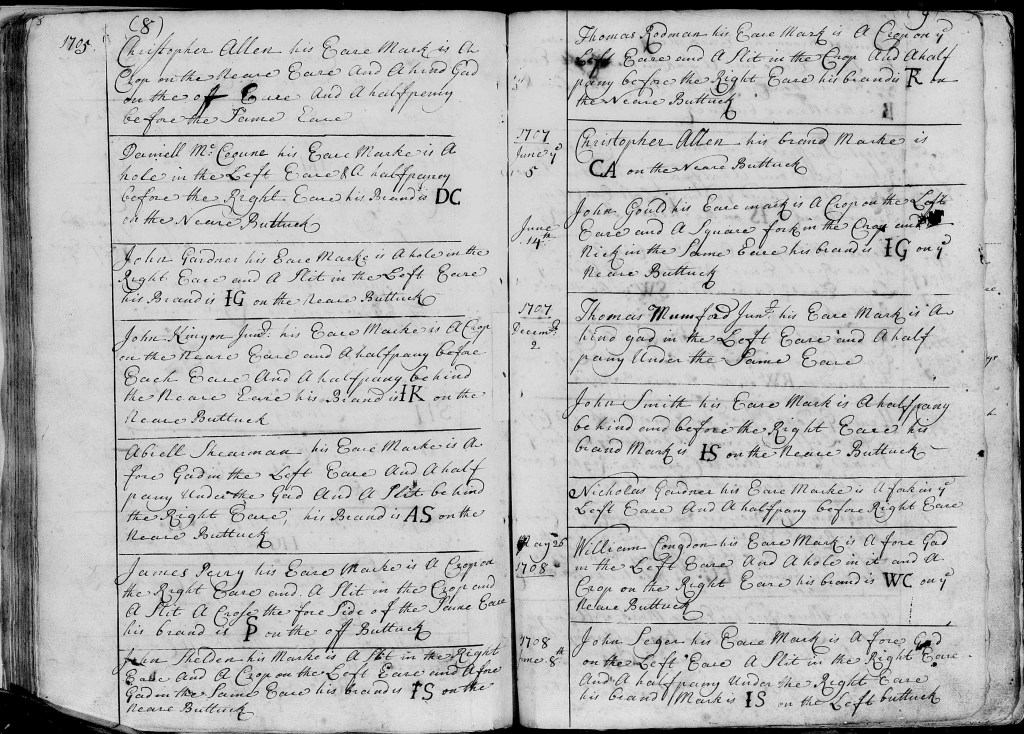 (8)
1705
Christopher Allen his Eare Mark is A
Crop on the Neare Eare And A hind Gad
on the off Eare And A halfpenny
before the Same Eare
Daniell Mc Cooune his Eare Marke is A
hole in the Left Eare & A halfpanny
before the Right Eare his Brand is DC
on the Neare Buttuck
John Gardner his Eare Marke is A hole in the
Right Eare and A Slit in the Left Eare
his Brand is IG on the Neare Buttuck
John Kinyon Junr. his Eare Marke is A Crop
on the Neare Eare and A halfpany before
Each Eare And A halfpany behind
the Neare Eare his Brand is IK on the
Neare Buttuck
Abiell Shearman his Eare Marke is A
fore Gad in the Left Eare And A half
pany Under the Gad And A Slit behind
the Right Eare, his Brand is AS on the
Neare Buttuck
James Perry his Eare Marke is A Crop on
the Right Eare and A Slit in the Crop and
A Slit A Cross the fore Side of the Same Eare
his brand is P on the off Buttuck
John Shelden his Marke is A Slit in the Right
Eare And A Crop on the Left Eare and A fore
Gad in the Same Eare his brand is IS on the
Neare Buttuck
9
Thomas Rodman his Eare Mark is A Crop on ye
Left Eare and A Slit in the Crop And A half
pany before the Right Eare his brand is R on
the Neare Buttuck
1707
June ye
5
Christopher Allen his brand Marke is
CA on the Neare Buttuck
June
14th
John Gould his Eare mark is A Crop on the Left
Eare and A Square fork in the Crop and
Nick in the Same Eare his brand is IG on ye
Neare Buttuck
1707
Decemr.
2
Thomas Mumford Junr. his Eare Mark is A
hind gad in the Left Eare and A half
pany Under the Same Eare
John Smith his Eare Mark is A halfpany
behind and before the Right Eare his
brand Mark is IS on the Neare Buttuck
Nicholas Gardner his Eare Marke is A fork in ye
Left Eare And A halfpany before Right Eare
May 26
1708
William Congdon his Eare Mark is A fore Gad
in the Left Eare And A hole in it and A
Crop on the Right Eare his brand is WC on ye
Neare Buttuck
1708
June 8th
John Seger his Eare Mark is A fore Gad
on the Left Eare A Slit in the Right Eare
And A halfpany Under the Right Eare
his brand Mark is IS on the Left buttuck